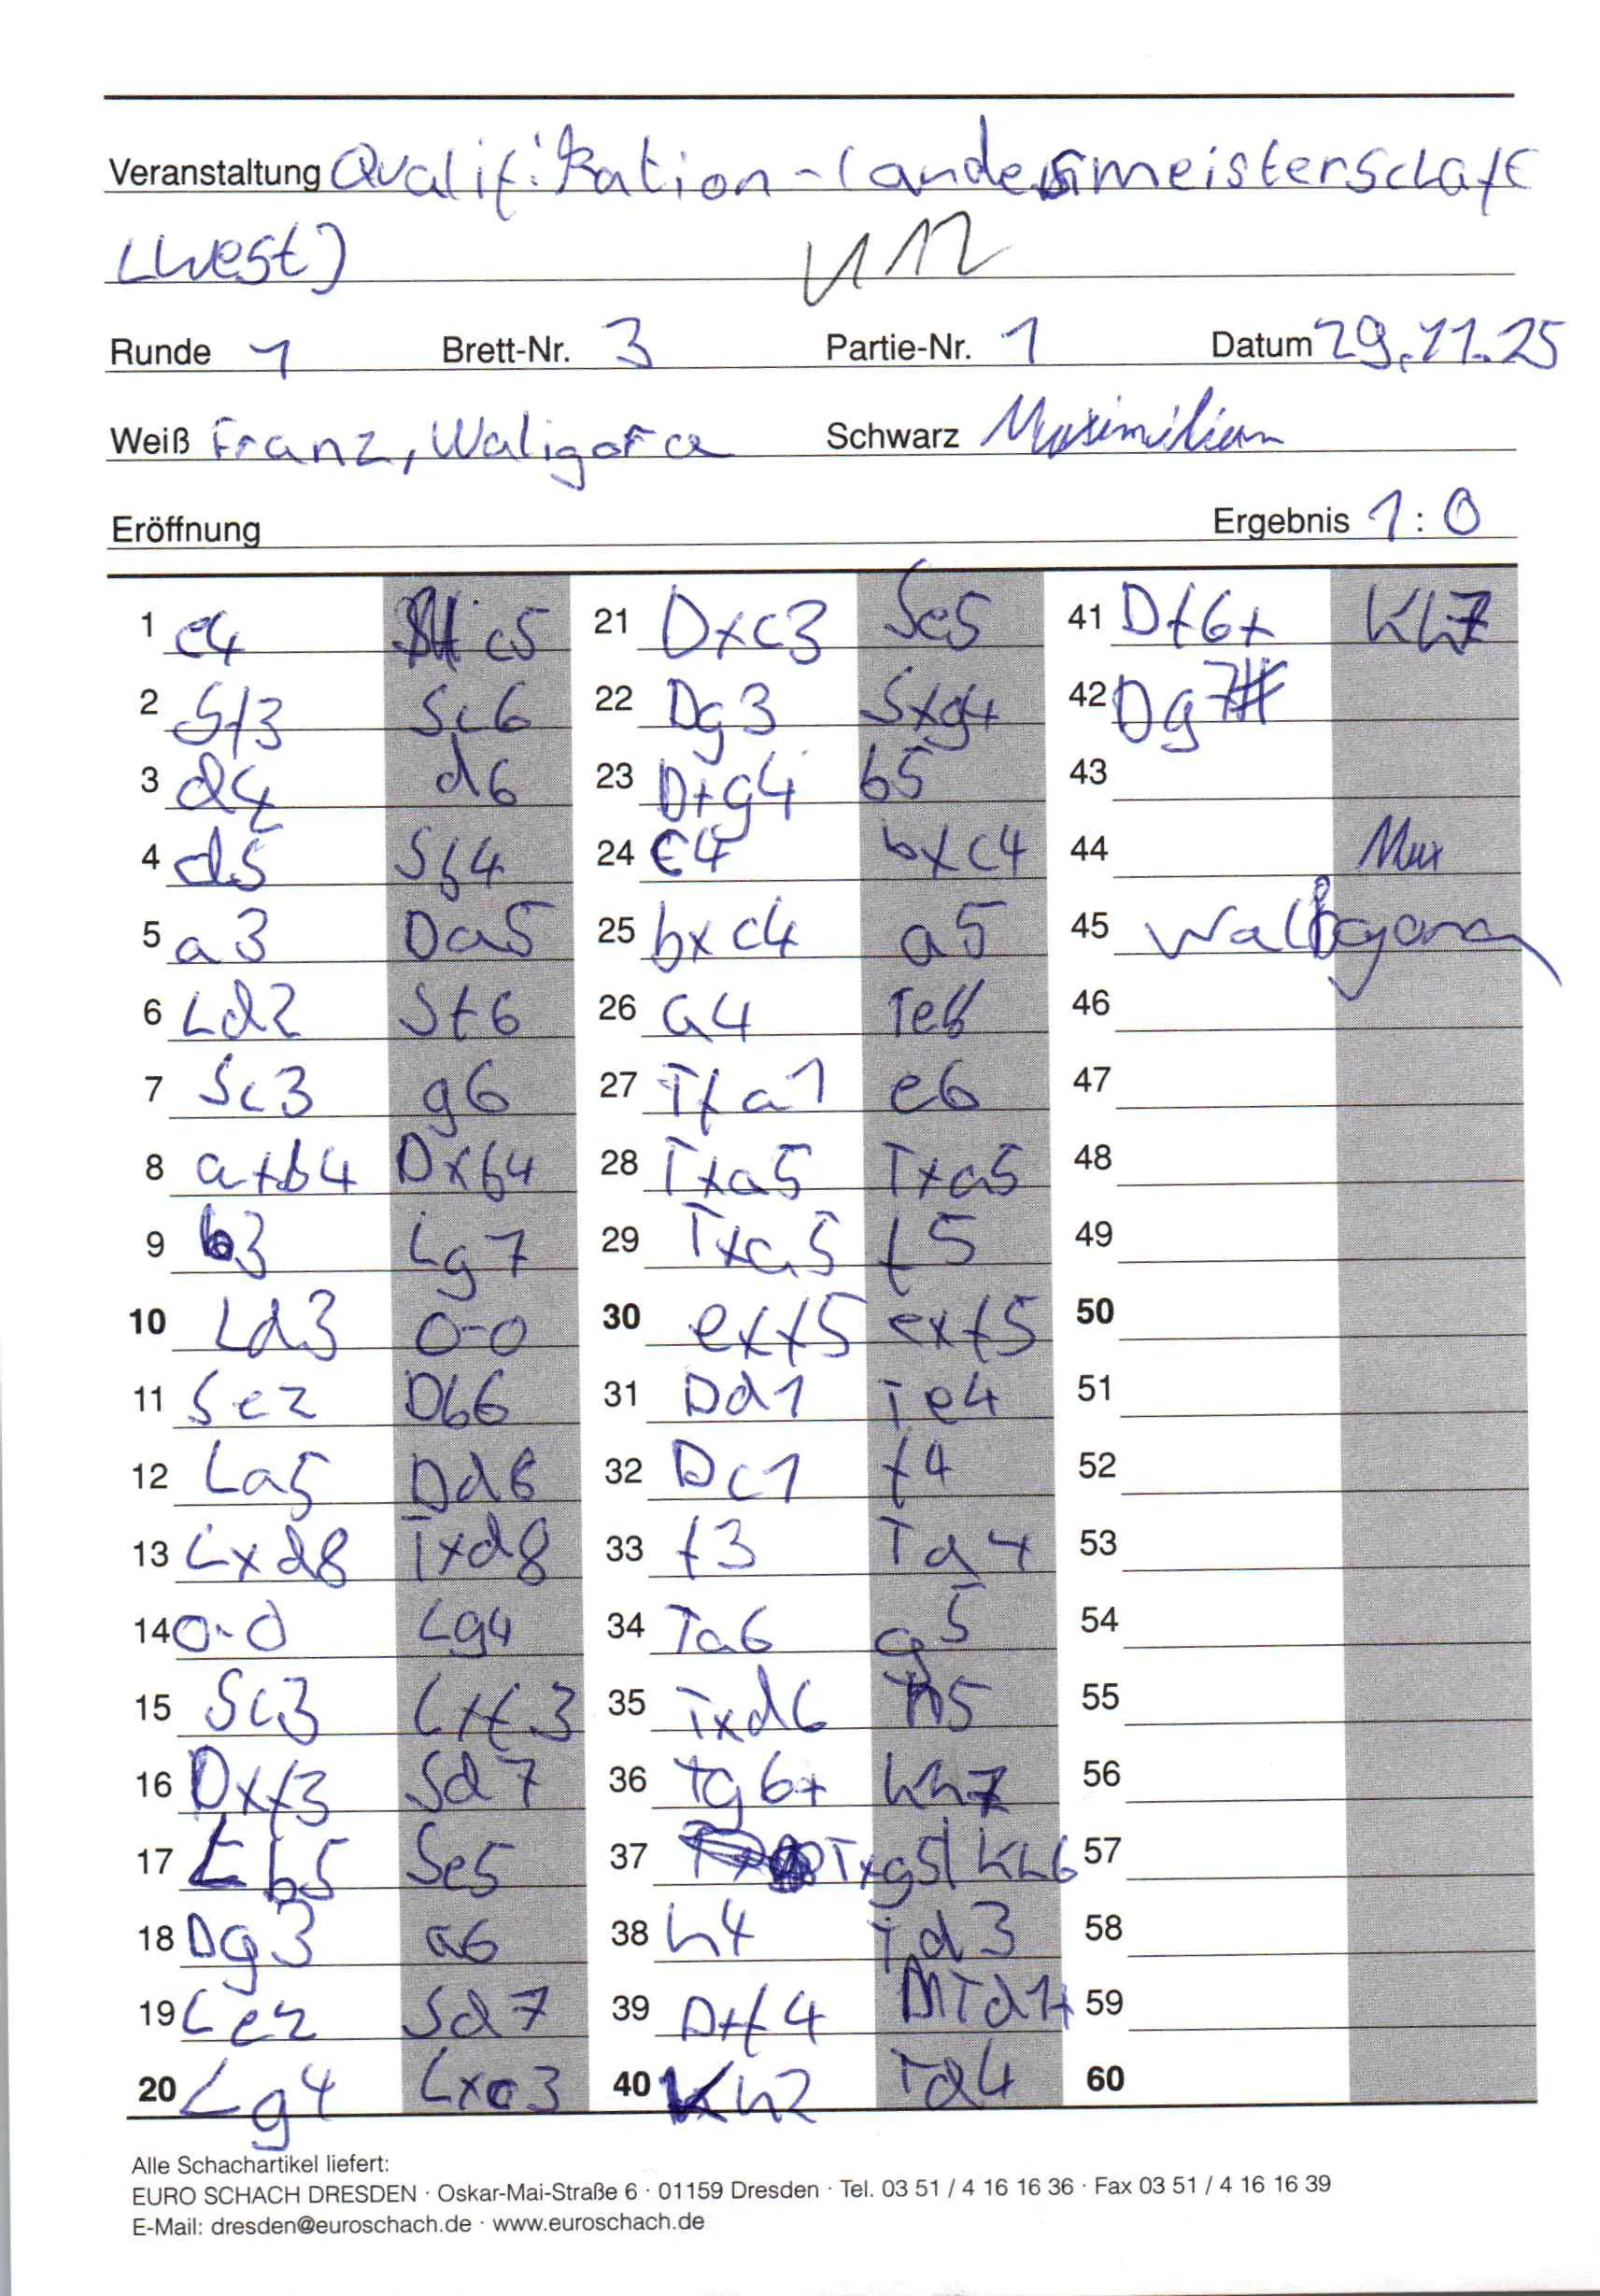 Veranstaltung Qualifikation-landesmeisterschaft
(West) U12
Runde 1 Brett-Nr. 3 Partie-Nr. 1 Datum 29.11.25
Weiß Franz, Waligora Schwarz Maximilian
Eröffnung Ergebnis 1:0
1 e4 c5 21 Dxc3 Se5 41 Df6+ Kh7
2 Sf3 Sc6 22 Dg3 Sxg4 42 Dg7#
3 d4 d6 23 Dxg4 b5 43
4 d5 Sb4 24 c4 bxc4 44 Max
5 a3 Da5 25 bxc4 a5 45 Waligora
6 Ld2 Sf6 26 a4 Te8 46
7 Sc3 g6 27 Tfa1 e6 47
8 axb4 Dxb4 28 Txa5 Txa5 48
9 b3 Lg7 29 Txa5 f5 49
10 Ld3 0-0 30 exf5 exf5 50
11 Se2 Db6 31 Dd1 Te4 51
12 La5 Dd8 32 Dc1 f4 52
13 Lxd8 Txd8 33 f3 Td4 53
14 0-0 Lg4 34 Ta6 g5 54
15 Sc3 Lxf3 35 Txd6 h5 55
16 Dxf3 Sd7 36 Tg6+ Kh7 56
17 Lb5 Se5 37 Txg5 Kh6 57
18 Dg3 a6 38 h4 Td3 58
19 Le2 Sd7 39 Dxf4 Td1+ 59
20 Lg4 Lxc3 40 Kh2 Td4 60
Alle Schachartikel liefert:
EURO SCHACH DRESDEN · Oskar-Mai-Straße 6 · 01159 Dresden · Tel. 03 51 / 4 16 16 36 · Fax 03 51 / 4 16 16 39
E-Mail: dresden@euroschach.de · www.euroschach.de